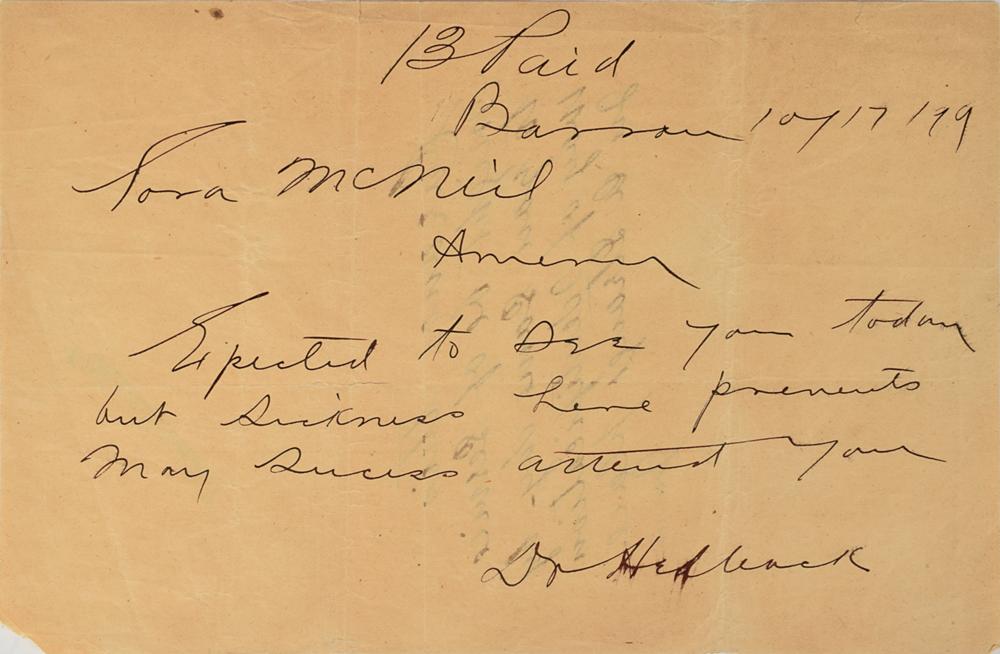 13 Paid
Barron 10/17 199
Cora McNeil
Amery
Expected to see you today
but sickness here prevents
May Sucess attend you
Dr